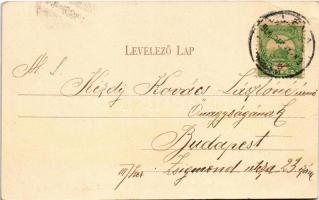 LEVELEZŐ LAP
Kézdy Kovács Lászlóné
Önagyságának
Budapest
III/ker Zsigmond utcza 23 szám